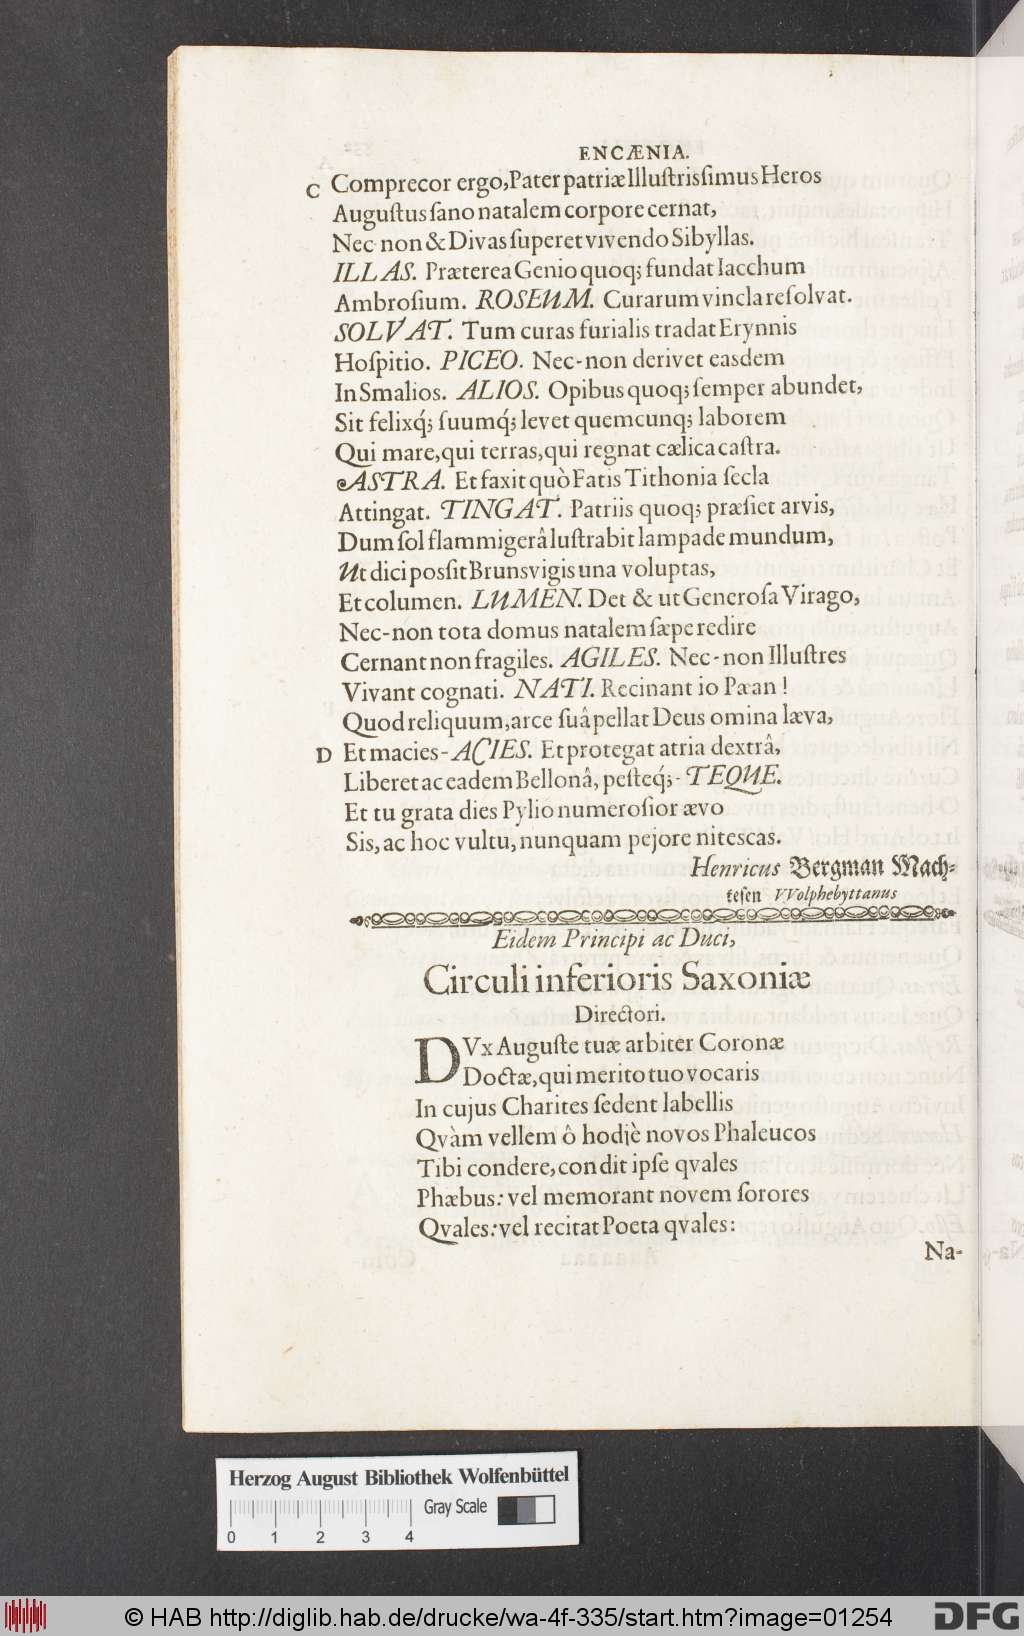 ENCÆNIA.
C Comprecor ergo, Pater patriæ Illuſtrisſimus Heros
Auguſtus ſano natalem corpore cernat,
Nec non & Divas ſuperet vivendo Sibyllas.
ILLAS. Præterea Genio quoq; fundat Iacchum
Ambroſium. ROSEUM. Curarum vincla reſolvat.
SOLVAT. Tum curas furialis tradat Erynnis
Hoſpitio. PICEO. Nec-non derivet easdem
In Smalios. ALIOS. Opibus quoq; ſemper abundet,
Sit felixq́; ſuumq́; levet quemcunq; laborem
Qui mare, qui terras, qui regnat cælica caſtra.
ASTRA. Et faxit quò Fatis Tithonia ſecla
Attingat. TINGAT. Patriis quoq; præſiet arvis,
Dum ſol flammigerâ luſtrabit lampade mundum,
Ut dici posſit Brunsvigis una voluptas,
Et columen. LUMEN. Det & ut Generoſa Virago,
Nec-non tota domus natalem ſæpe redire
Cernant non fragiles. AGILES. Nec-non Illuſtres
Vivant cognati. NATI. Recinant io Pæan!
Quod reliquum, arce ſuâ pellat Deus omina læva,
D Et macies- ACIES. Et protegat atria dextrâ,
Liberet ac eadem Bellonâ, peſteq́;- TEQUE.
Et tu grata dies Pylio numeroſior ævo
Sis, ac hoc vultu, nunquam pejore nitescas.
Henricus Bergman Mach-
teſen VVolphebyttanus
Eidem Principi ac Duci,
Circuli inferioris Saxoniæ
Directori.
DVx Auguſte tuæ arbiter Coronæ
Doctæ, qui merito tuo vocaris
In cujus Charites ſedent labellis
Qvàm vellem ô hodiè novos Phaleucos
Tibi condere, condit ipſe qvales
Phæbus: vel memorant novem ſorores
Qvales: vel recitat Poeta qvales:
Na-
Herzog August Bibliothek Wolfenbüttel
Gray Scale
0 1 2 3 4
© HAB http://diglib.hab.de/drucke/wa-4f-335/start.htm?image=01254
DFG